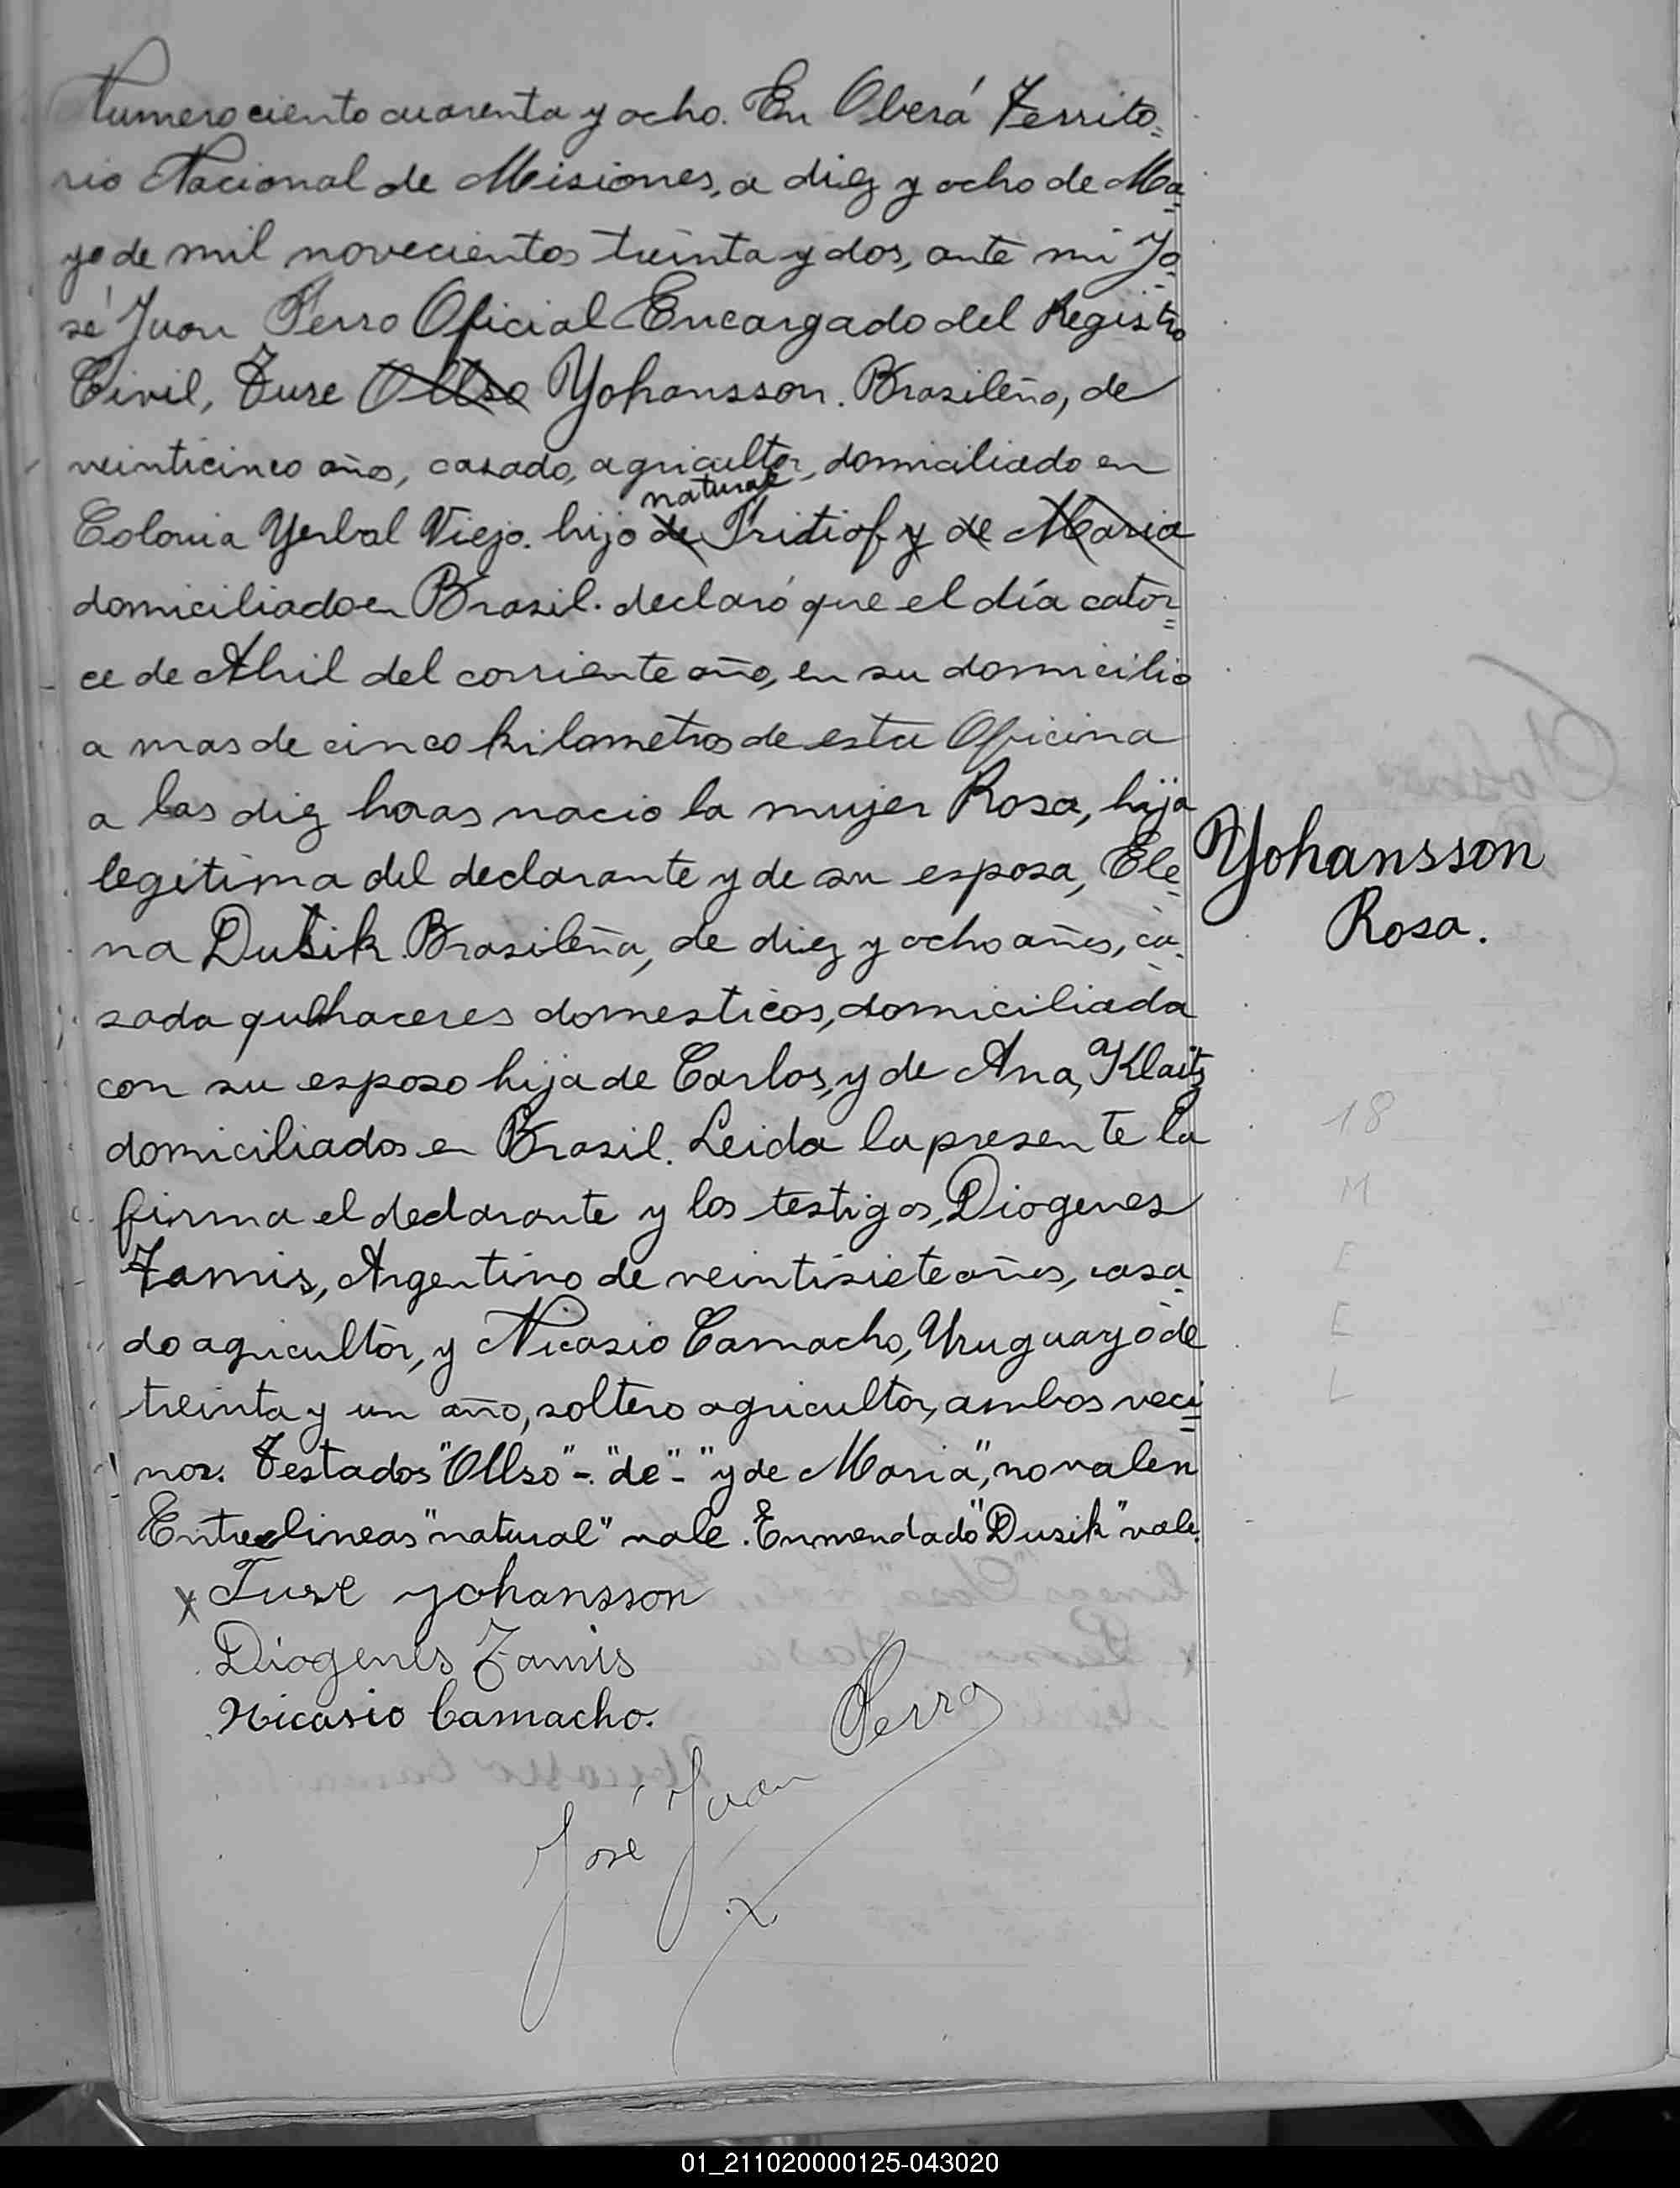 Numero ciento cuarenta y ocho. En Oberá Territo=
rio Nacional de Misiones, a diez y ocho de Ma=
yo de mil novecientos treinta y dos, ante mi Jo=
sé Juan Perro Oficial Encargado del Registro
Civil, Ture Ollso Yohansson. Brasileño, de
veinticinco años, casado, agricultor, domiciliado en
natural
Colonia Yerbal Viejo. hijo de Tritiof y de Maria
domiciliado en Brasil. declaró que el día cator=
ce de Abril del corriente año, en su domicilio
a mas de cinco kilometros de esta Oficina
a las diez horas nacio la mujer Rosa, hija
legitima del declarante y de su esposa, Ele=
na Dusik. Brasileña, de diez y ocho años, ca=
sada quehaceres domesticos, domiciliada
con su esposo hija de Carlos, y de Ana, Klaitz
domiciliados en Brasil. Leida la presente la
firma el declarante y los testigos, Diogenes
Zamis, Argentino de veintisiete años, casa=
do agricultor, y Nicasio Camacho, Uruguayo de
treinta y un año, soltero agricultor, ambos veci=
nos. Testados "Ollso"-. "de"- "y de Maria", no valen
Entrelineas "natural" vale. Enmendado "Dusik" vale.
x Ture yohansson
Diogenes Zamis
Nicasio Camacho.
José Juan Perro
Yohansson
Rosa.
18
M
E
E
L
01_211020000125-043020